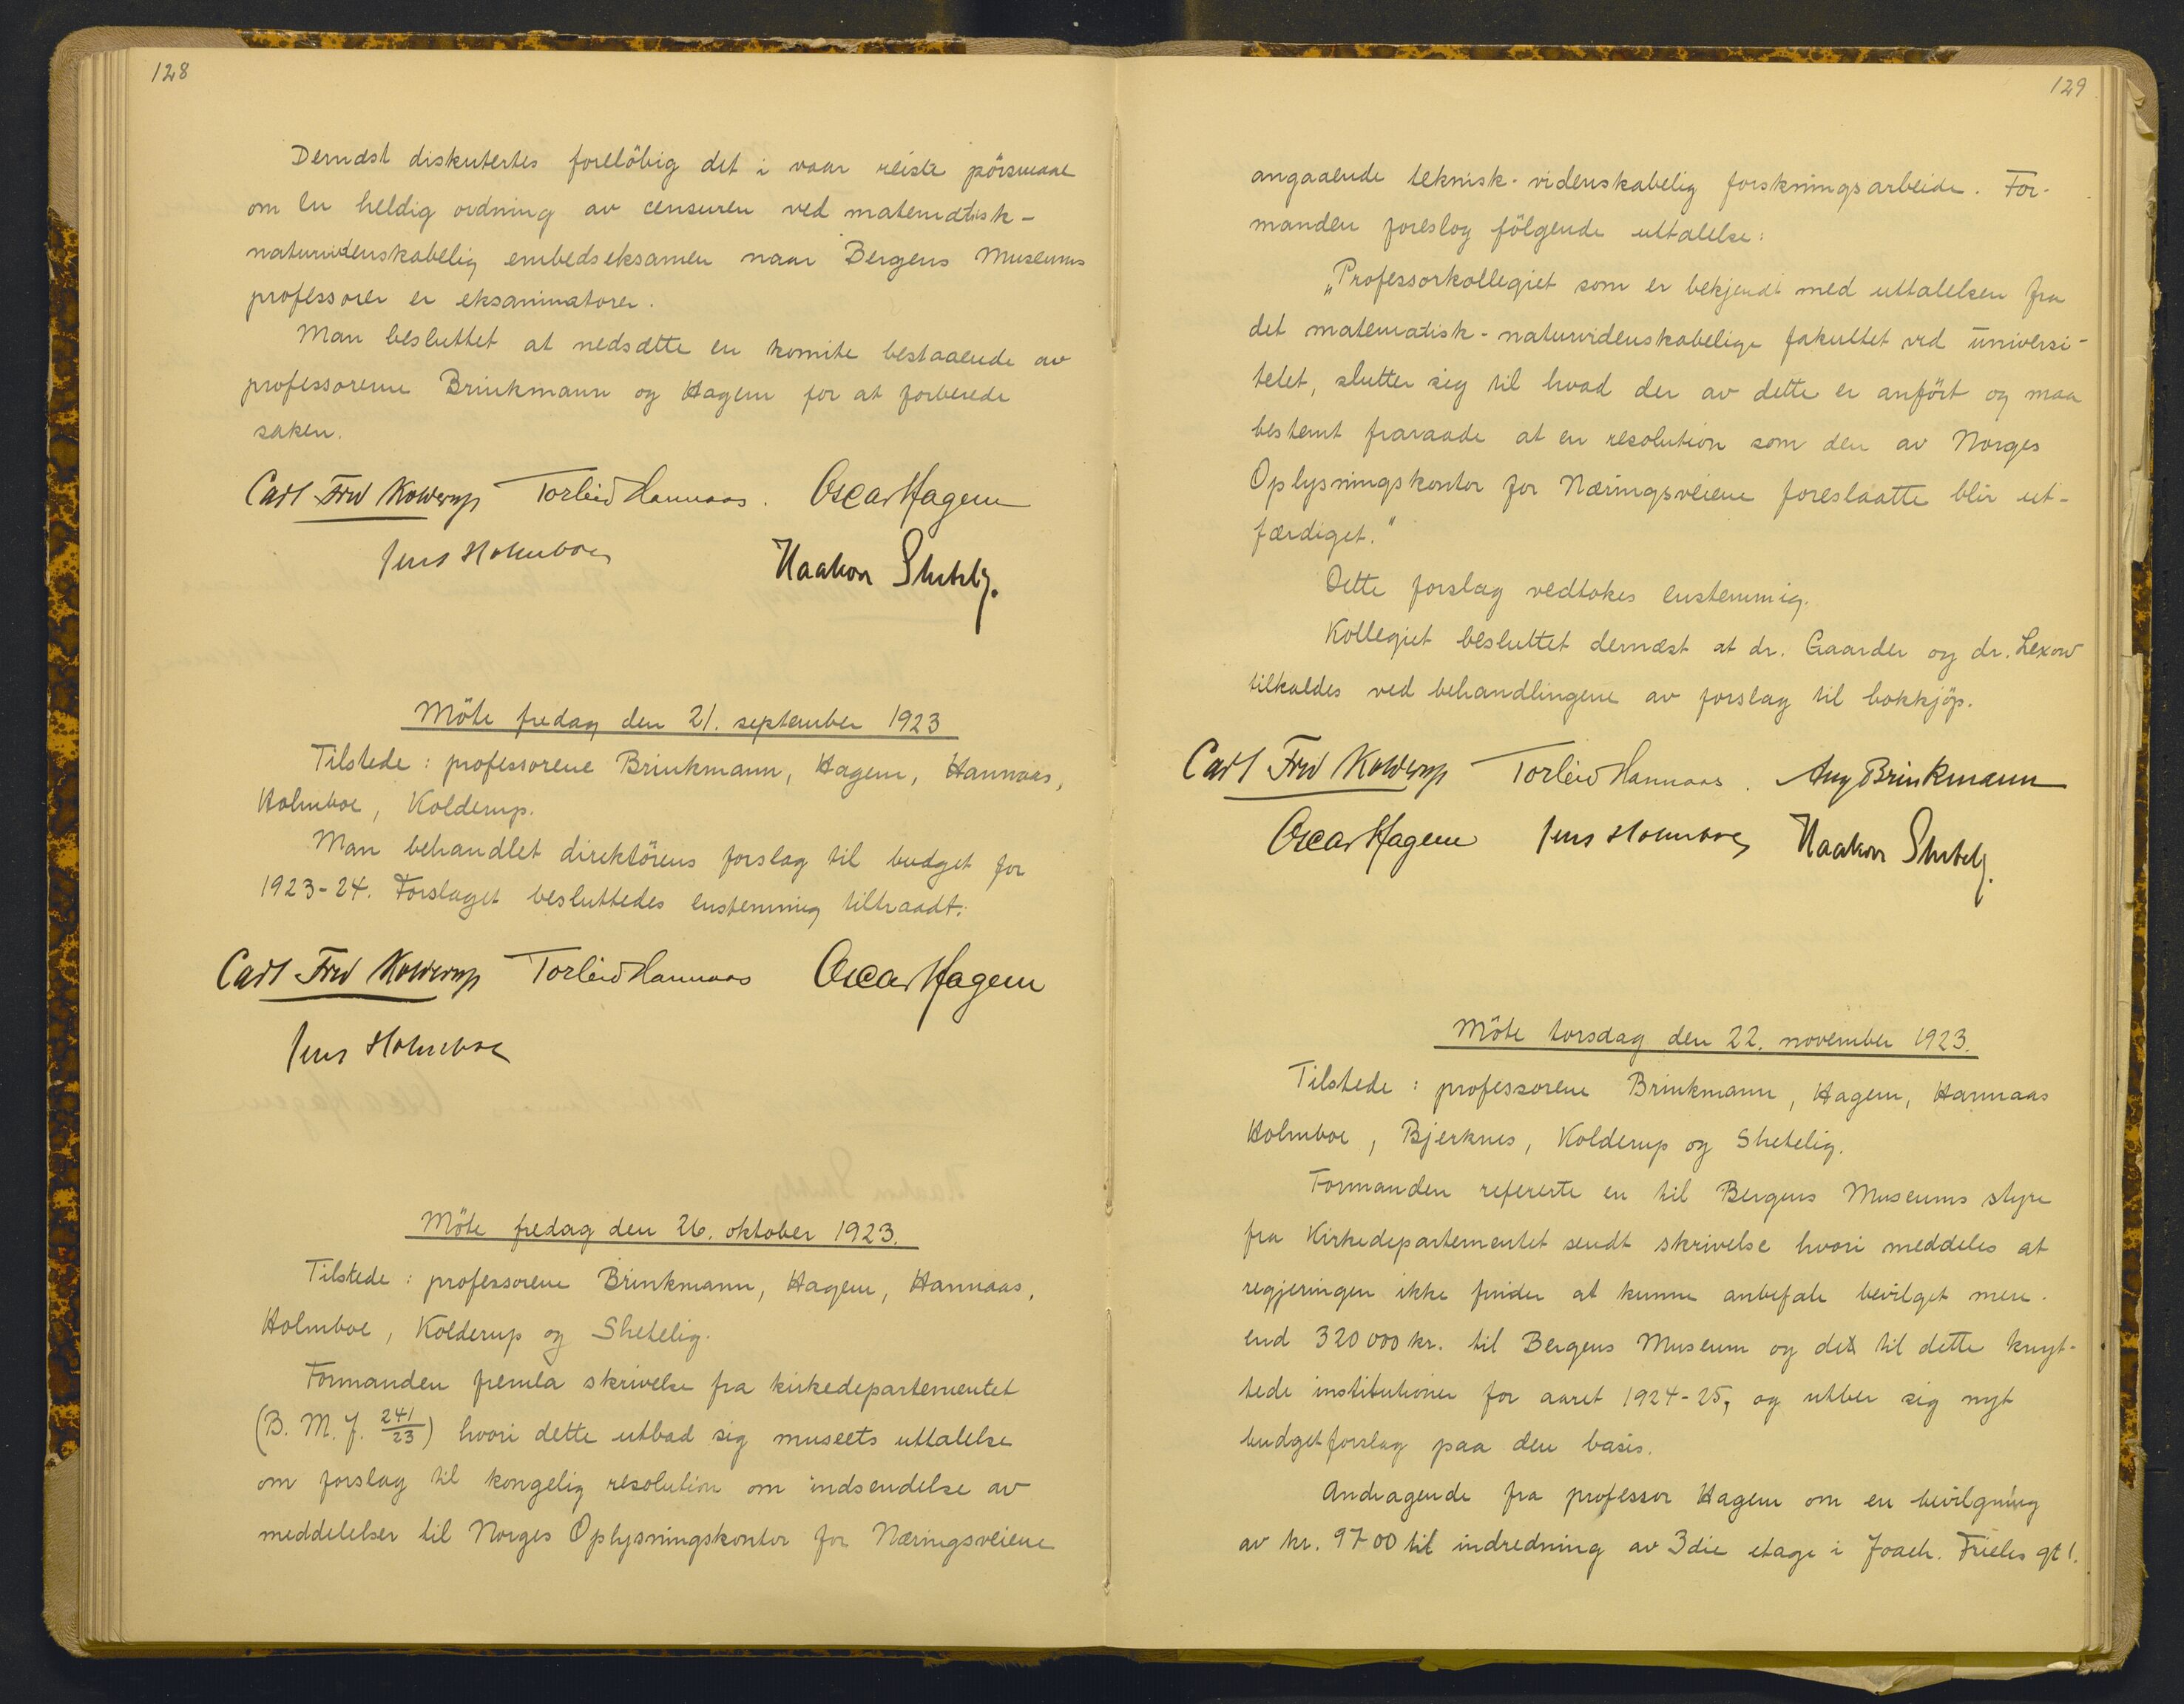 128
Dernæst diskutertes foreløbig det i vaar reiste spörsmaal
om en heldig ordning av censuren ved matematisk-
naturvidenskabelig embedseksamen naar Bergens Museums
professorer er eksaminatorer.
Man besluttet at nedsætte en komite bestaaende av
professorerne Brinkmann og Hagem for at forberede
saken.
Carl Fred Kolderup Torleiv Hannaas. Oscar Hagem
Jens Holmboe Haakon Shetelig.
Möte fredag den 21. september 1923
Tilstede : professorene Brinkmann, Hagem, Hannaas,
Holmboe, Kolderup.
Man behandlet direktörens forslag til budget for
1923-24. Forslaget besluttedes enstemmig tiltraadt.
Carl Fred Kolderup Torleiv Hannaas Oscar Hagem
Jens Holmboe
Möte fredag den 26. oktober 1923.
Tilstede : professorene Brinkmann, Hagem, Hannaas,
Holmboe, Kolderup og Shetelig.
Formanden fremla skrivelse fra kirkedepartementet
(B. M. J. 241/23) hvori dette utbad sig museets uttalelse
om forslag til kongelig resolution om indsendelse av
meddelelser til Norges Oplysningskontor for Næringsveiene
129
angaaende teknisk-videnskabelig forskningsarbeide. For-
manden foreslog fölgende uttalelse:
„Professorkollegiet som er bekjendt med uttalelsen fra
det matematisk-naturvidenskabelige fakultet ved universi-
tetet, slutter sig til hvad der av dette er anfört og maa
bestemt fraraade at en resolution som den av Norges
Oplysningskontor for Næringsveiene foreslaatte blir ut-
færdiget."
Dette forslag vedtokes enstemmig.
Kollegiet besluttet dernæst at dr. Gaarder og dr. Lexow
tilkaldes ved behandlingene av forslag til bokkjöp.
Carl Fred Kolderup Torleiv Hannaas. Aug Brinkmann
Oscar Hagem Jens Holmboe Haakon Shetelig.
Möte torsdag den 22. november 1923.
Tilstede : professorene Brinkmann, Hagem, Hannaas
Holmboe, Bjerknes, Kolderup og Shetelig.
Formanden refererte en til Bergens Museums styre
fra Kirkedepartementet sendt skrivelse hvori meddeles at
regjeringen ikke finder at kunne anbefale bevilget mere
end 320 000 kr. til Bergens Museum og de til dette knyt-
tede institutioner for aaret 1924-25, og utber sig nyt
budgetforslag paa den basis.
Andragende fra professor Hagem om en bevilgning
av kr. 9700 til indredning av 3die etage i Joach. Frieles gt 1.